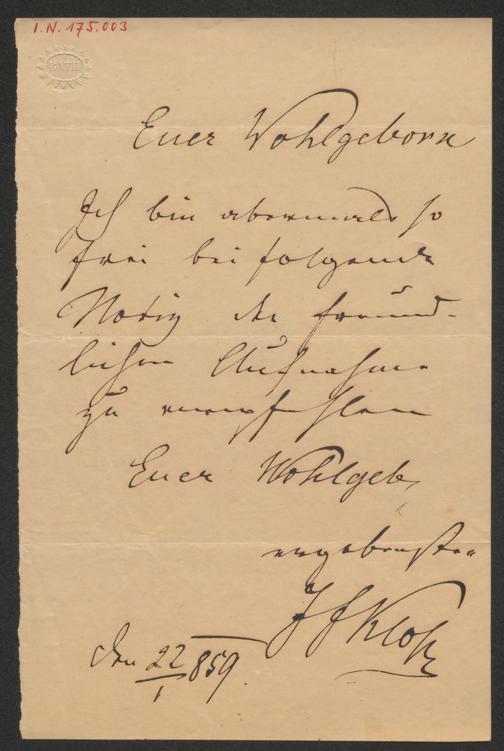 I.N. 175.003
BATH
Euer Wohlgeborn
Ich bin abermals so
frei bei folgende
Notiz der freund-
lichen Aufnahme
zu empfehlen
Euer Wohlgeb.
ergebenster
J F Kloß
den 22/1 859.